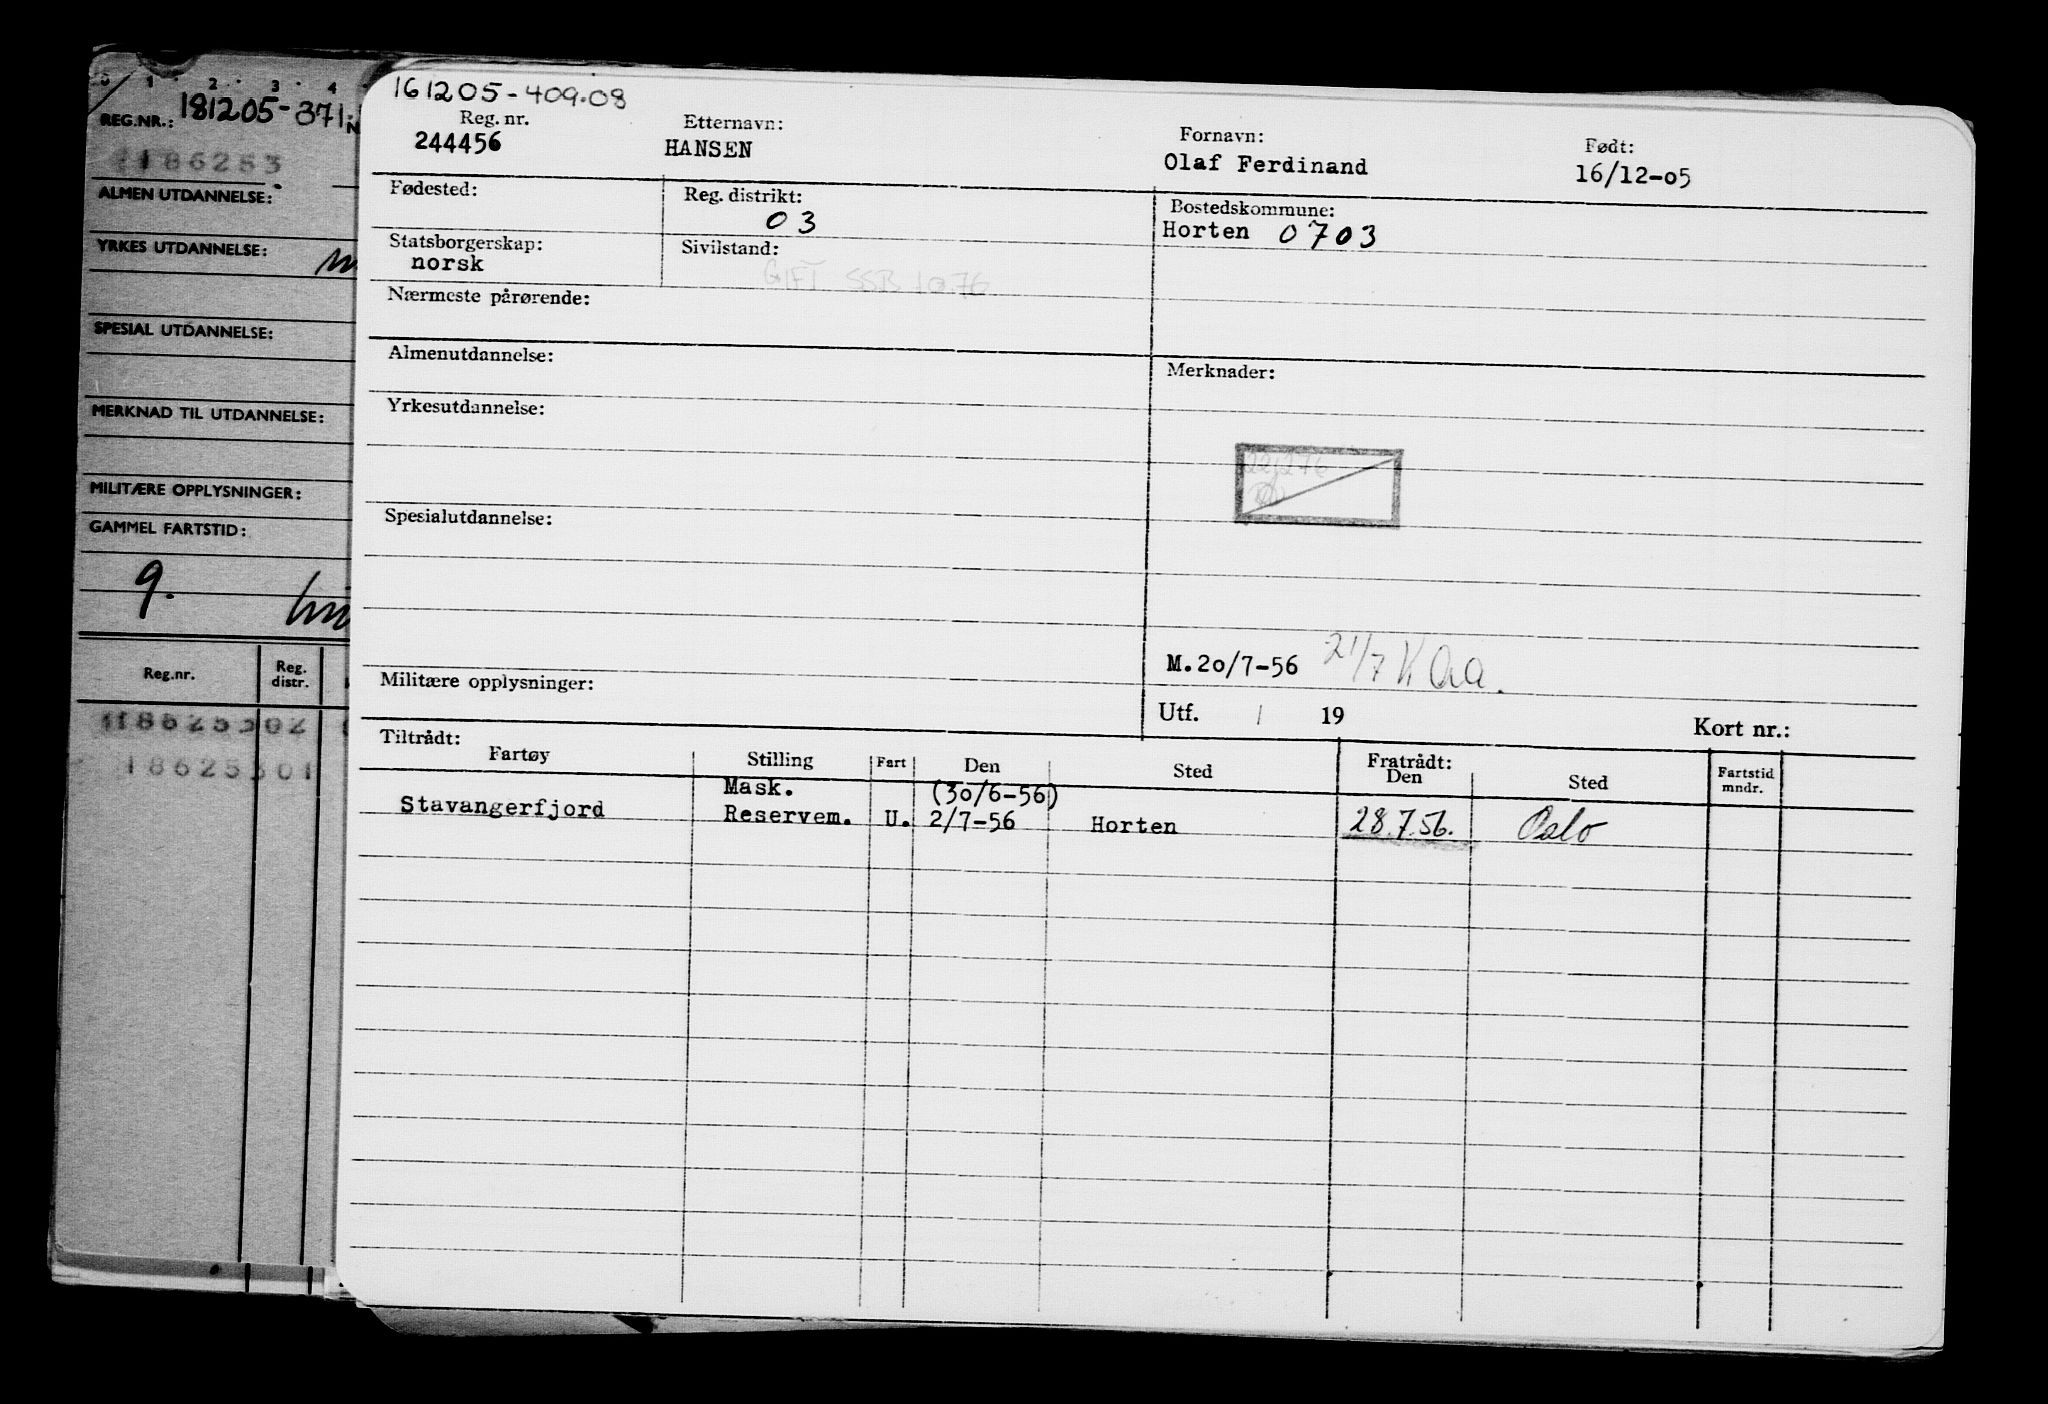 0 1 2 3 4
REG.NR.: 181205-371
186253
ALMEN UTDANNELSE:
YRKES UTDANNELSE:
SPESIAL UTDANNELSE:
MERKNAD TIL UTDANNELSE:
MILITÆRE OPPLYSNINGER:
GAMMEL FARTSTID:
9.
Reg.nr. Reg. distr.
18625302
18625301
161205-409.08
Reg. nr. Etternavn: Fornavn: Født:
244456 HANSEN Olaf Ferdinand 16/12-05
Fødested: Reg. distrikt: Bostedskommune:
03 Horten 0703
Statsborgerskap: Sivilstand:
norsk GIFT SSB 10.76
Nærmeste pårørende:
Almenutdannelse: Merknader:
Yrkesutdannelse:
Spesialutdannelse:
M.20/7-56 21/7
Militære opplysninger:
Utf. / 19 Kort nr.:
Tiltrådt: Fratrådt:
Fartøy Stilling Fart Den Sted Den Sted Fartstid mndr.
Mask. (30/6-56)
Stavangerfjord Reservem. U. 2/7-56 Horten 28.7.56. Oslo